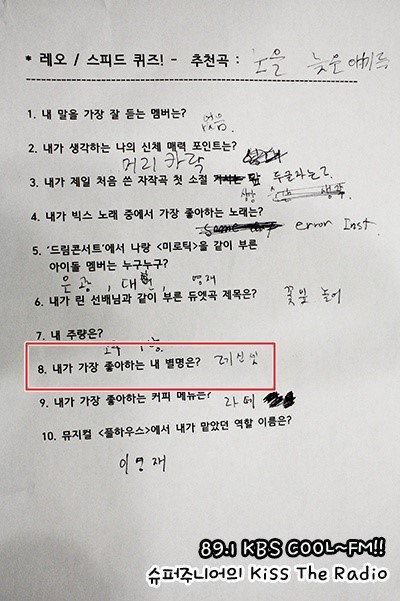 * 레오 / 스피드 퀴즈! - 추천곡 : 노을 늦은 얘기
1. 내 말을 가장 잘 듣는 멤버는? 없음.
2. 내가 생각하는 나의 신체 매력 포인트는?
머리카락
3. 내가 제일 처음 쓴 자작곡 첫 소절
4. 내가 빅스 노래 중에서 가장 좋아하는 노래는? error Inst.
5. ‘드림콘서트’에서 나랑 <미로틱>을 같이 부른
아이돌 멤버는 누구누구?
은광, 대현, 영재
6. 내가 린 선배님과 같이 부른 듀엣곡 제목은? 꽃잎 놀이
7. 내 주량은?
8. 내가 가장 좋아하는 내 별명은? 레신셋
9. 내가 가장 좋아하는 커피 메뉴는? 라떼
10. 뮤지컬 <풀하우스>에서 내가 맡았던 역할 이름은?
이영재
89.1 KBS COOL~FM!!
슈퍼주니어의 Kiss The Radio